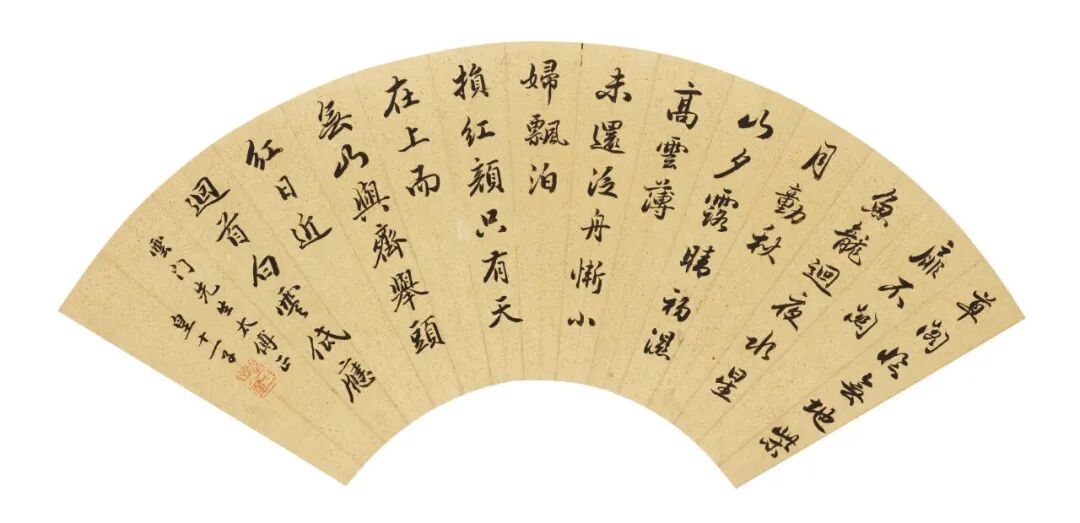 草閣臨無地柴
扉不關
魚龍迴夜水星
月動秋
山夕露晴初濕
高雲薄
未還泛舟慚小
婦飄泊
損紅顏只有天
在上而
無山與齊舉頭
紅日近
迴首白雲低應
雲门先生太傅正
皇十一子